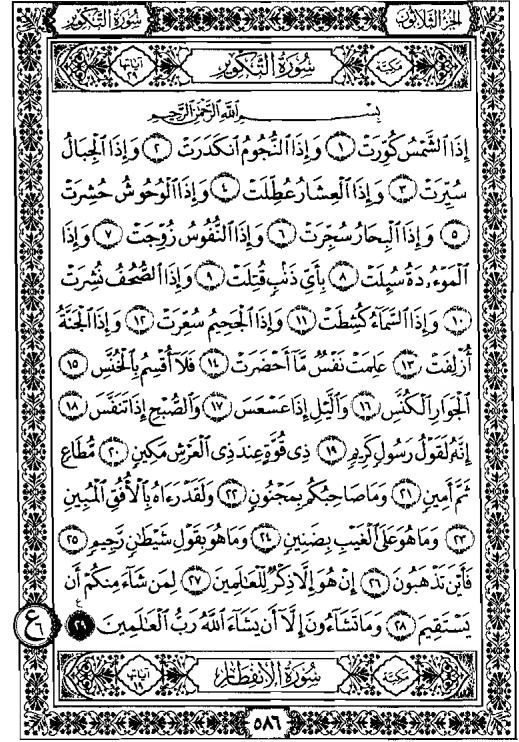 الجزء الثلاثون سورة التكوير
مكية سورة التكوير آياتها ٢٩
بِسْمِ ٱللَّهِ ٱلرَّحْمَٰنِ ٱلرَّحِيمِ
إِذَا ٱلشَّمْسُ كُوِّرَتْ ١ وَإِذَا ٱلنُّجُومُ ٱنكَدَرَتْ ٢ وَإِذَا ٱلْجِبَالُ
سُيِّرَتْ ٣ وَإِذَا ٱلْعِشَارُ عُطِّلَتْ ٤ وَإِذَا ٱلْوُحُوشُ حُشِرَتْ
٥ وَإِذَا ٱلْبِحَارُ سُجِّرَتْ ٦ وَإِذَا ٱلنُّفُوسُ زُوِّجَتْ ٧ وَإِذَا
ٱلْمَوْءُۥدَةُ سُئِلَتْ ٨ بِأَيِّ ذَنۢبٍ قُتِلَتْ ٩ وَإِذَا ٱلصُّحُفُ نُشِرَتْ
١٠ وَإِذَا ٱلسَّمَآءُ كُشِطَتْ ١١ وَإِذَا ٱلْجَحِيمُ سُعِّرَتْ ١٢ وَإِذَا ٱلْجَنَّةُ
أُزْلِفَتْ ١٣ عَلِمَتْ نَفْسٌ مَّآ أَحْضَرَتْ ١٤ فَلَآ أُقْسِمُ بِٱلْخُنَّسِ ١٥
ٱلْجَوَارِ ٱلْكُنَّسِ ١٦ وَٱلَّيْلِ إِذَا عَسْعَسَ ١٧ وَٱلصُّبْحِ إِذَا تَنَفَّسَ ١٨
إِنَّهُۥ لَقَوْلُ رَسُولٍ كَرِيمٍ ١٩ ذِى قُوَّةٍ عِندَ ذِى ٱلْعَرْشِ مَكِينٍ ٢٠ مُّطَاعٍ
ثَمَّ أَمِينٍ ٢١ وَمَا صَاحِبُكُم بِمَجْنُونٍ ٢٢ وَلَقَدْ رَءَاهُ بِٱلْأُفُقِ ٱلْمُبِينِ
٢٣ وَمَا هُوَ عَلَى ٱلْغَيْبِ بِضَنِينٍ ٢٤ وَمَا هُوَ بِقَوْلِ شَيْطَٰنٍ رَّجِيمٍ ٢٥
فَأَيْنَ تَذْهَبُونَ ٢٦ إِنْ هُوَ إِلَّا ذِكْرٌ لِّلْعَٰلَمِينَ ٢٧ لِمَن شَآءَ مِنكُمْ أَن
يَسْتَقِيمَ ٢٨ وَمَا تَشَآءُونَ إِلَّآ أَن يَشَآءَ ٱللَّهُ رَبُّ ٱلْعَٰلَمِينَ ٢٩
مكية سورة الانفطار آياتها ١٩
٥٨٦